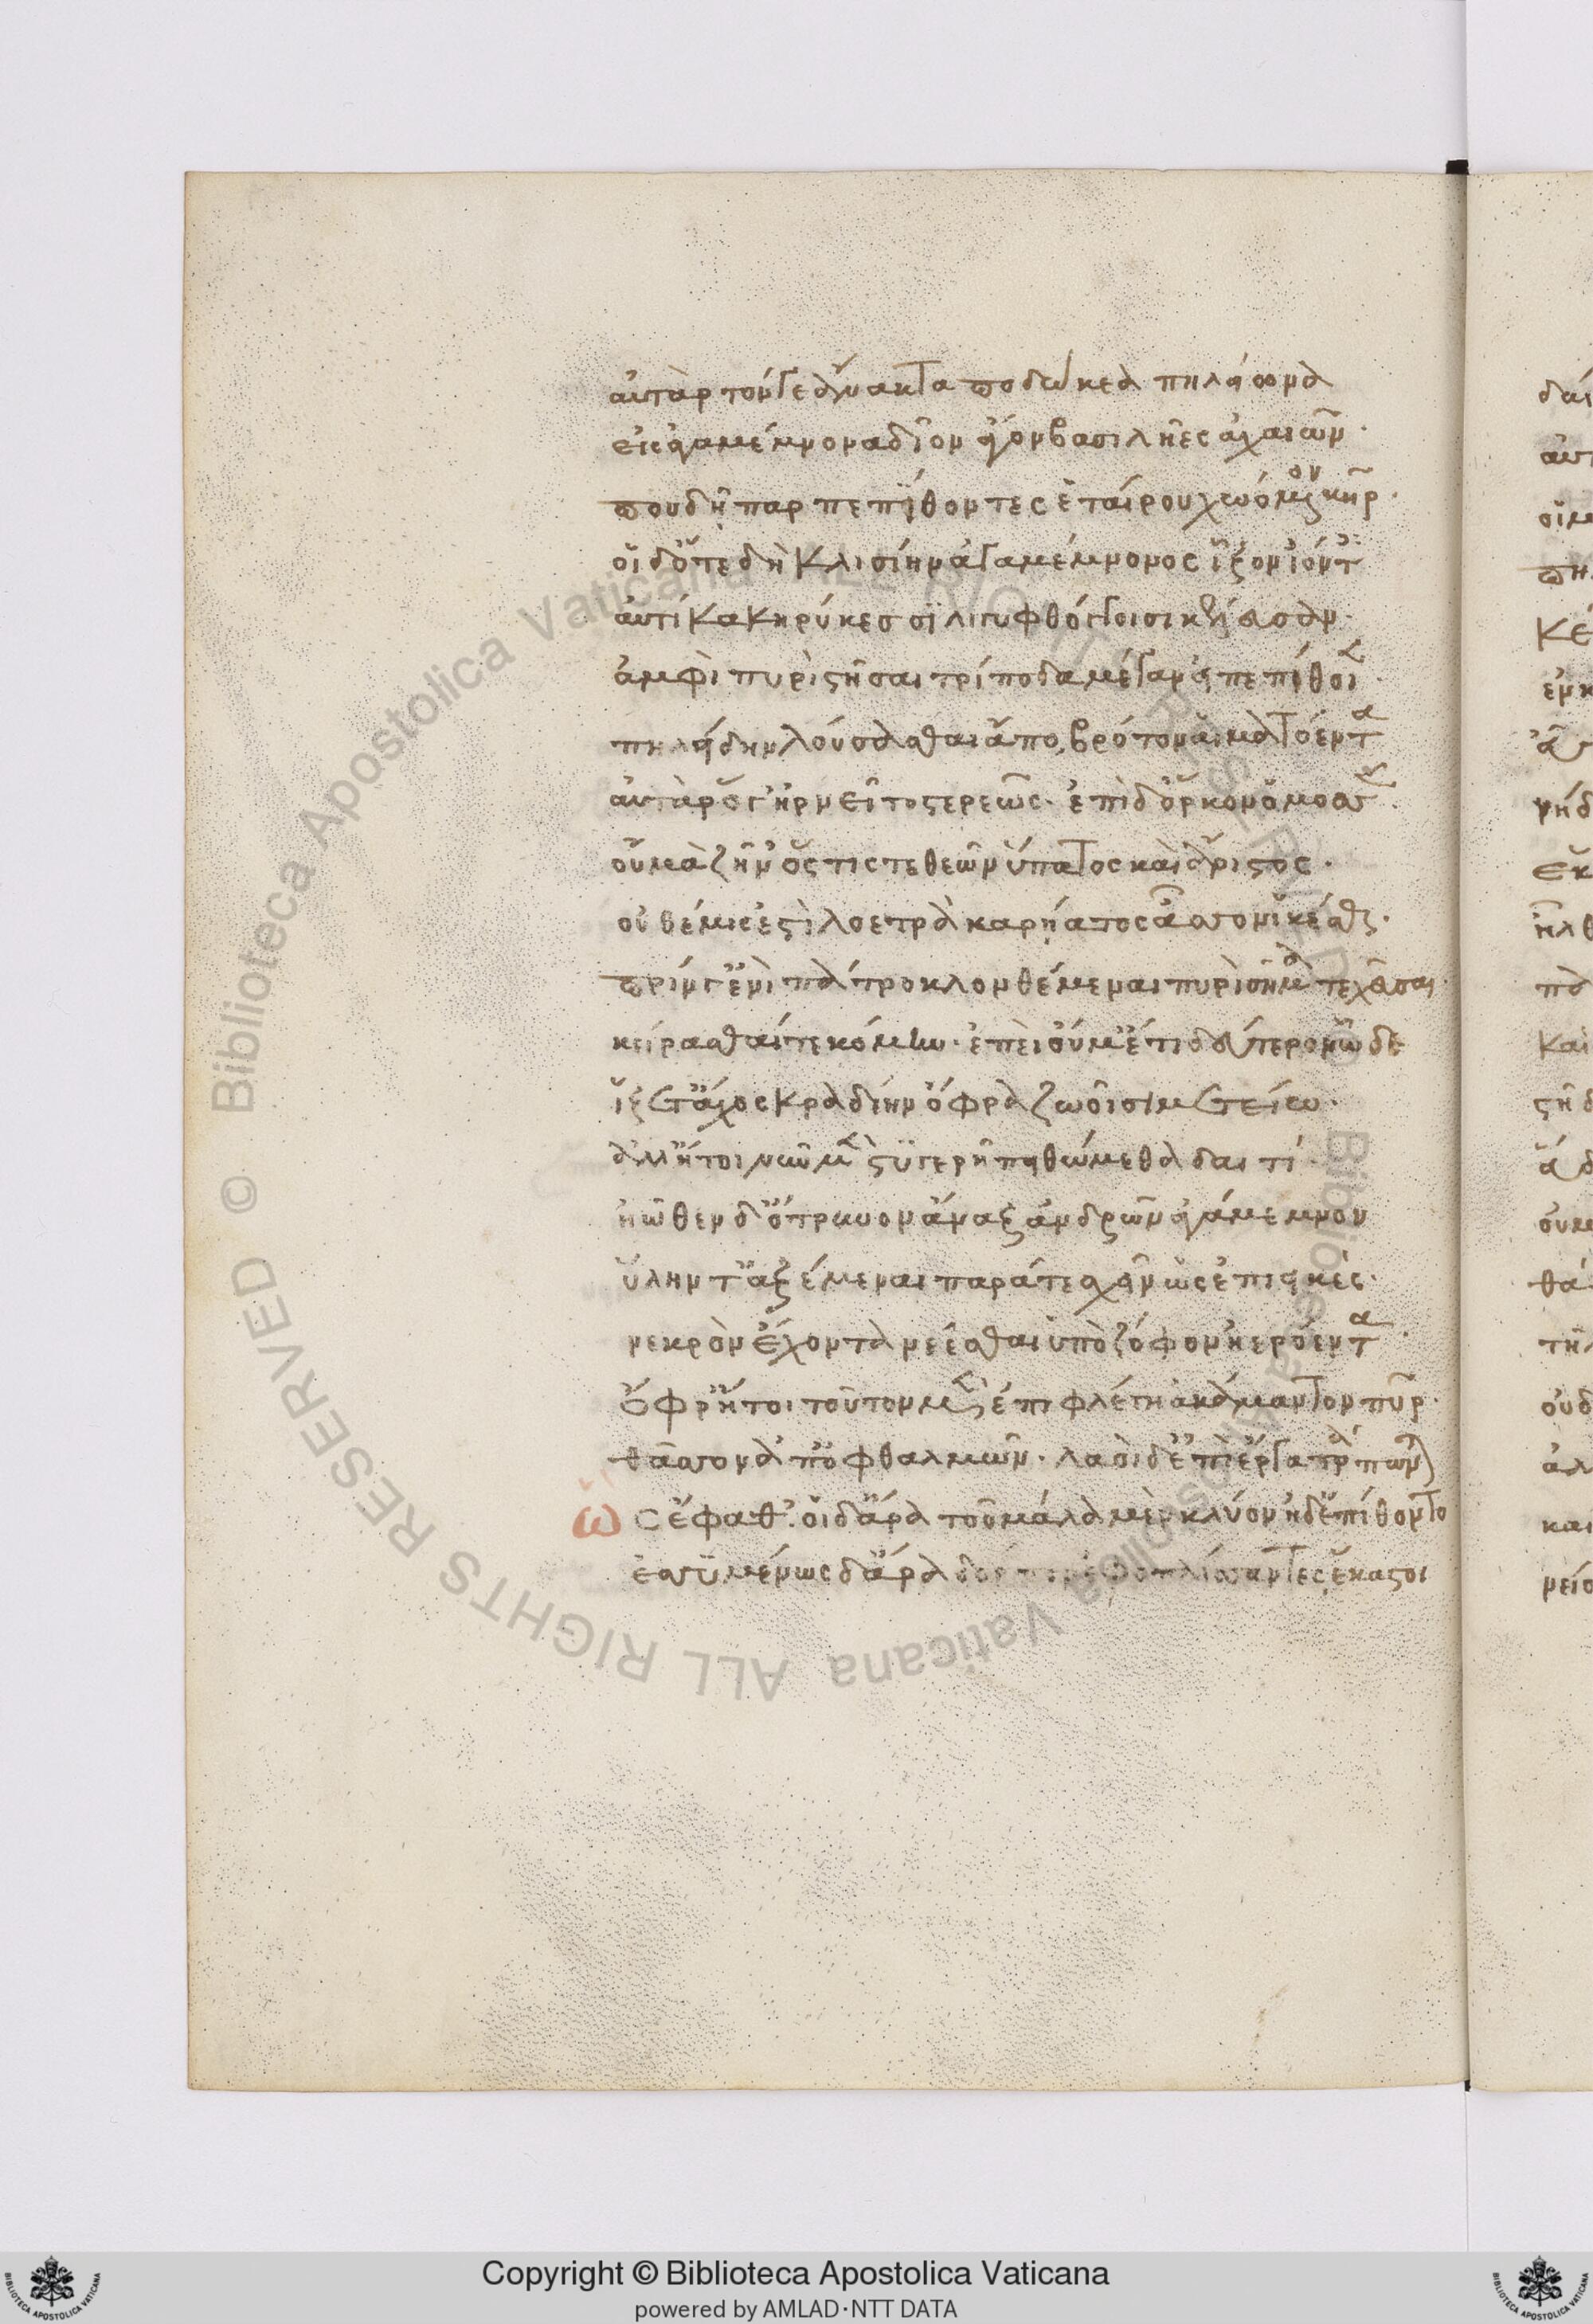 αὐτὰρ τόνγε ἄνακτα ποδώκεα πηλείωνα
εἰς ἀγαμέμνονα δῖον ἄγον βασιλῆες ἀχαιῶν·
σπουδῇ παρπεπιθόντες ἑταίρου χωόμενον κῆρ·
οἱ δ' ὅτε δὴ κλισίην ἀγαμέμνονος ἷξον ἰόντες
αὐτίκα κηρύκεσσι λιγυφθόγγοισι κέλευσαν·
ἀμφὶ πυρὶ στῆσαι τρίποδα μέγαν εἰ πεπίθοιεν
πηλείδην λούσασθαι ἄπο βρότον αἱματόεντα
αὐτὰρ ὅγ' ἠρνεῖτο στερεῶς· ἐπὶ δ' ὅρκον ὄμοσσεν·
οὐ μὰ ζῆν' ὅστίς τε θεῶν ὕπατος καὶ ἄριστος·
οὐ θέμις ἐστὶ λοετρὰ καρήατος ἆσσον ἱκέσθαι·
πρίν γ' ἐνὶ πάτροκλον θέμεναι πυρὶ σῆμά τε χεῦσαι·
κείρασθαί τε κόμην· ἐπεὶ οὔ μ' ἔτι δεύτερον ὧδε
ἵξετ' ἄχος κραδίην ὄφρα ζωοῖσι μετείω·
ἀλλ' ἤτοι νῦν μὲν στυγερῇ πειθώμεθα δαιτί·
ἠῶθεν δ' ὄτρυνον ἄναξ ἀνδρῶν ἀγάμεμνον
ὕλην τ' ἀξέμεναι παρά τε σχεῖν ὡς ἐπιεικὲς·
νεκρὸν ἔχοντα νέεσθαι ὑπὸ ζόφον ἠερόεντα·
ὄφρ' ἤτοι τοῦτον μὲν ἐπιφλέγῃ ἀκάματον πῦρ·
θᾶσσον ἀπ' ὀφθαλμῶν· λαοὶ δ' ἐπὶ ἔργα τράπωνται
ὣς ἔφαθ'· οἱ δ' ἄρα τοῦ μάλα μὲν κλύον ἠδ' ἐπίθοντο
ἐσσυμένως δ' ἄρα δόρπον ἐφοπλίσσαντες ἕκαστοι
Copyright © Biblioteca Apostolica Vaticana
powered by AMLAD·NTT DATA